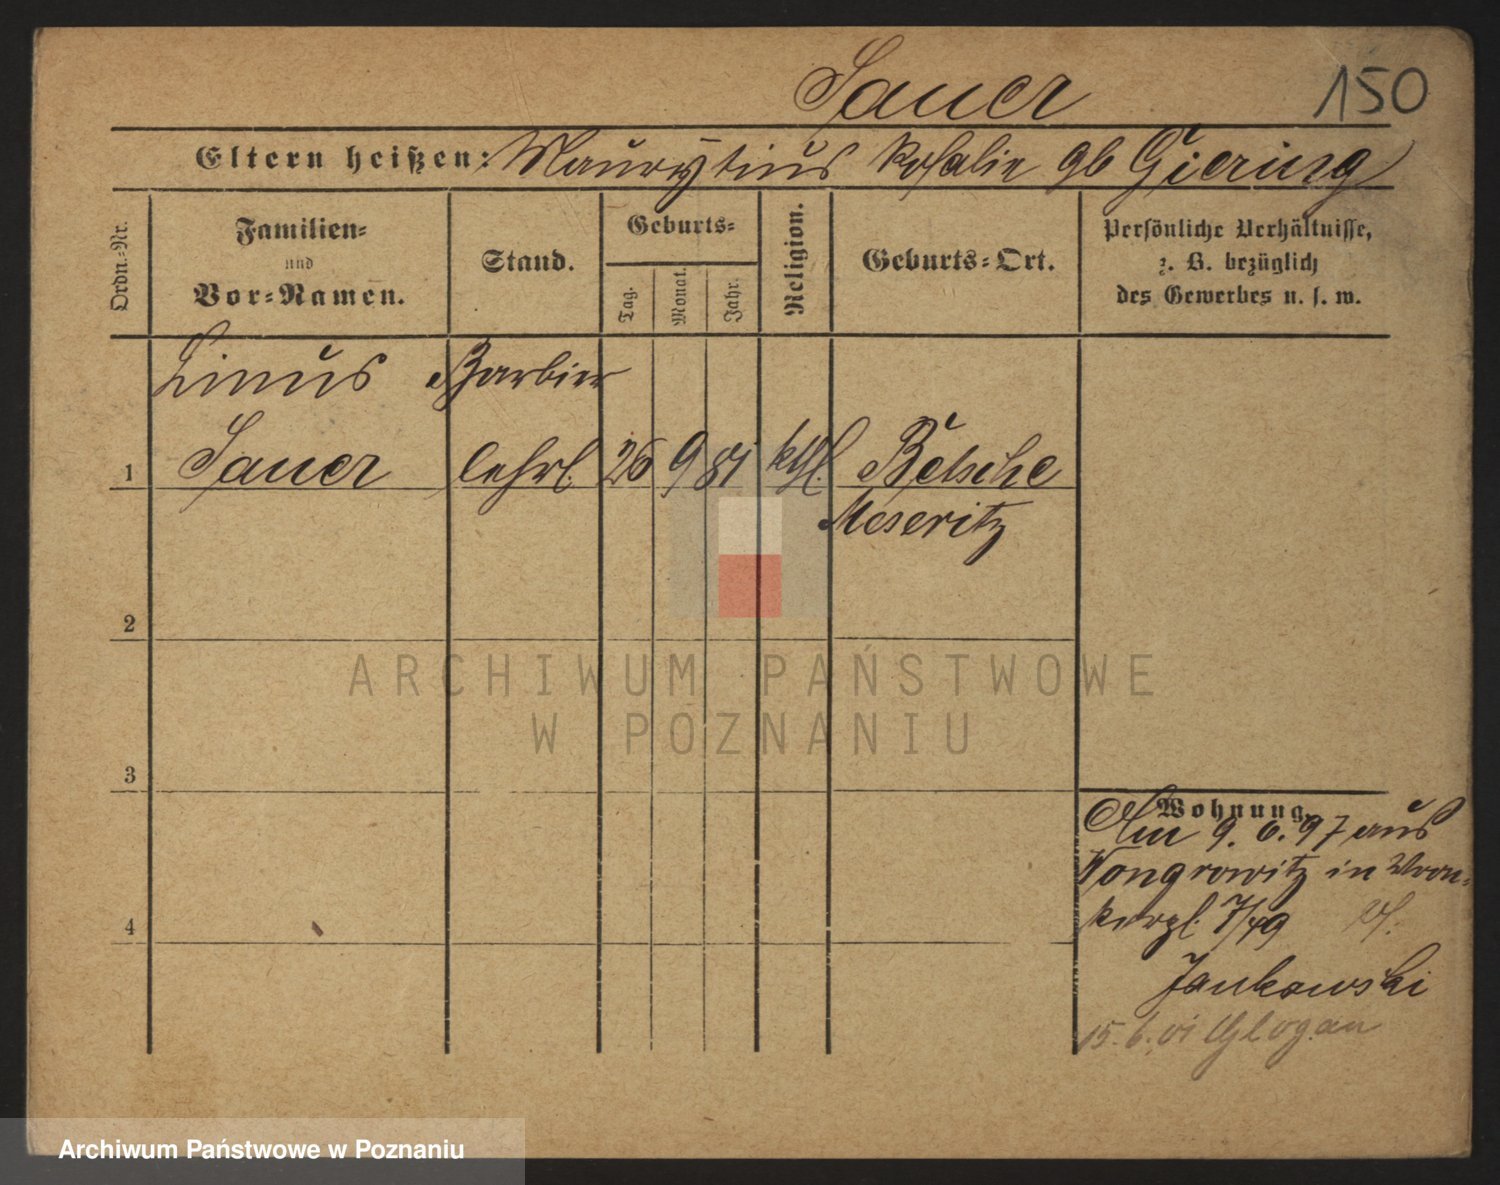 Sauer
150
Eltern heißen: Maurytius Rosalie gb Giering
Ordn.-Nr.
Familien-
und
Vor-Namen.
Stand.
Geburts-
Tag.
Monat.
Jahr.
Religion.
Geburts-Ort.
Persönliche Verhältnisse,
z. B. bezüglich
des Gewerbes u. s. w.
Linus Barbier
1 Sauer lehrl. 26 9 81 kthl. Betsche
Meseritz
2
ARCHIWUM PAŃSTWOWE
W POZNANIU
3
Wohnung.
Am 9. 6. 97 aus
Wongrowitz in Wron-
kerpl. 7/49
4
Jankowski
15. 6. 01 Glogau
Archiwum Państwowe w Poznaniu